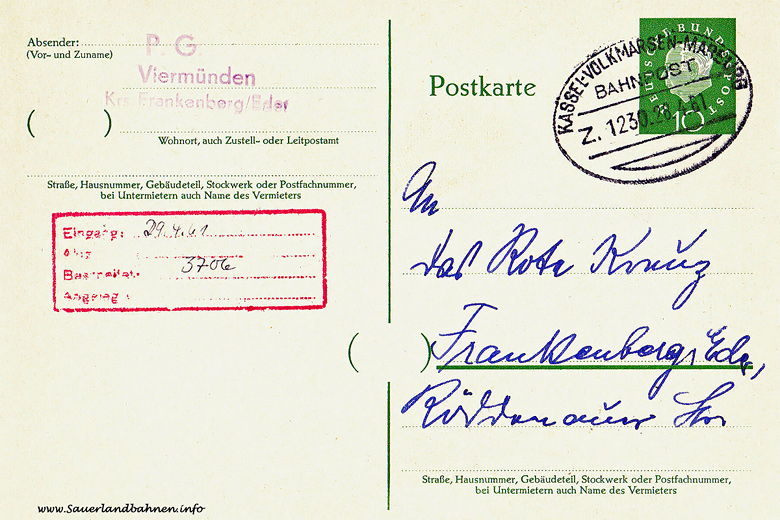 Absender:
(Vor- und Zuname)
P. G.
Viermünden
Krs. Frankenberg/Eder
( )
Wohnort, auch Zustell- oder Leitpostamt
Straße, Hausnummer, Gebäudeteil, Stockwerk oder Postfachnummer,
bei Untermietern auch Name des Vermieters
Eingang: 29.4.61
3706
Bearbeitet:
Postkarte
DEUTSCHE BUNDESPOST
10
KASSEL-VOLKMARSEN-MARBURG
BAHNPOST
Z. 1230 28.4.61
An
das Rote Kreuz
( ) Frankenberg, Eder,
Röddenauer Str
Straße, Hausnummer, Gebäudeteil, Stockwerk oder Postfachnummer,
bei Untermietern auch Name des Vermieters
www.Sauerlandbahnen.info